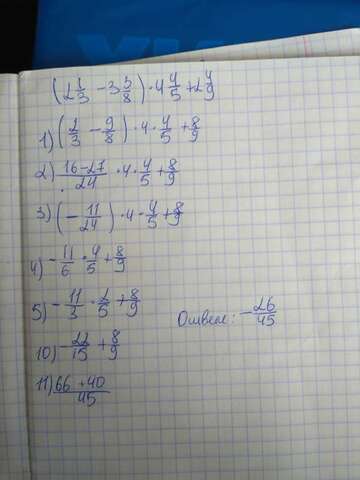 (2 1/3 - 3 3/8) · 4 4/5 + 2 4/9
1) (2/3 - 9/8) · 4 · 4/5 + 8/9
2) 16-27/24 · 4 · 4/5 + 8/9
3) (- 11/24) · 4 · 4/5 + 8/9
4) - 11/6 · 4/5 + 8/9
5) - 11/3 · 2/5 + 8/9
Ответ: - 26/45
10) - 22/15 + 8/9
11) 66 + 40/45